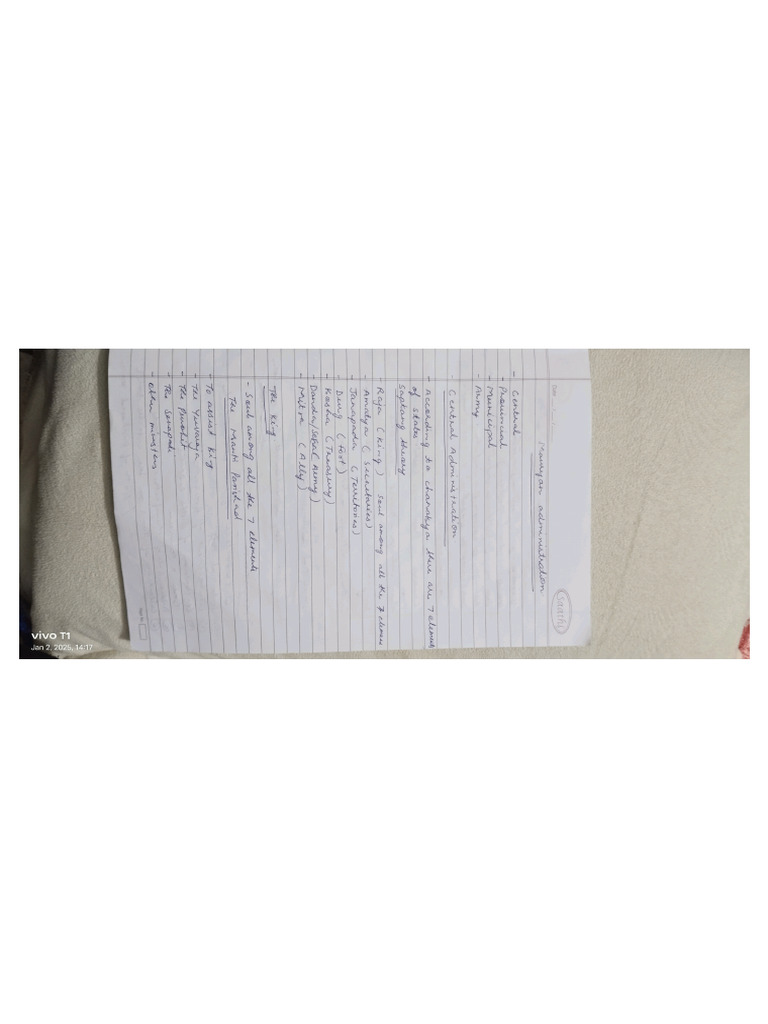 Saathi
Mauryan administration
- Central
- Provincial
- Municipal
- Army
- Central Administration
- According to chanakya there are 7 elements
of states
Saptang theory
- Raja (King) soul among all the 7 elements
- Amatya (Secretaries)
- Janapada (Territories)
- Durg (Fort)
- Kosha (Treasury)
- Danda/Sena(Army)
- Mitra (Ally)
The King
- Soul among all the 7 elements
The Mantri Parishad
- To assist King
- The Yuvaraja
- The Purohit
- The Senapati
- other ministers
vivo T1
Jan 2, 2025, 14:17